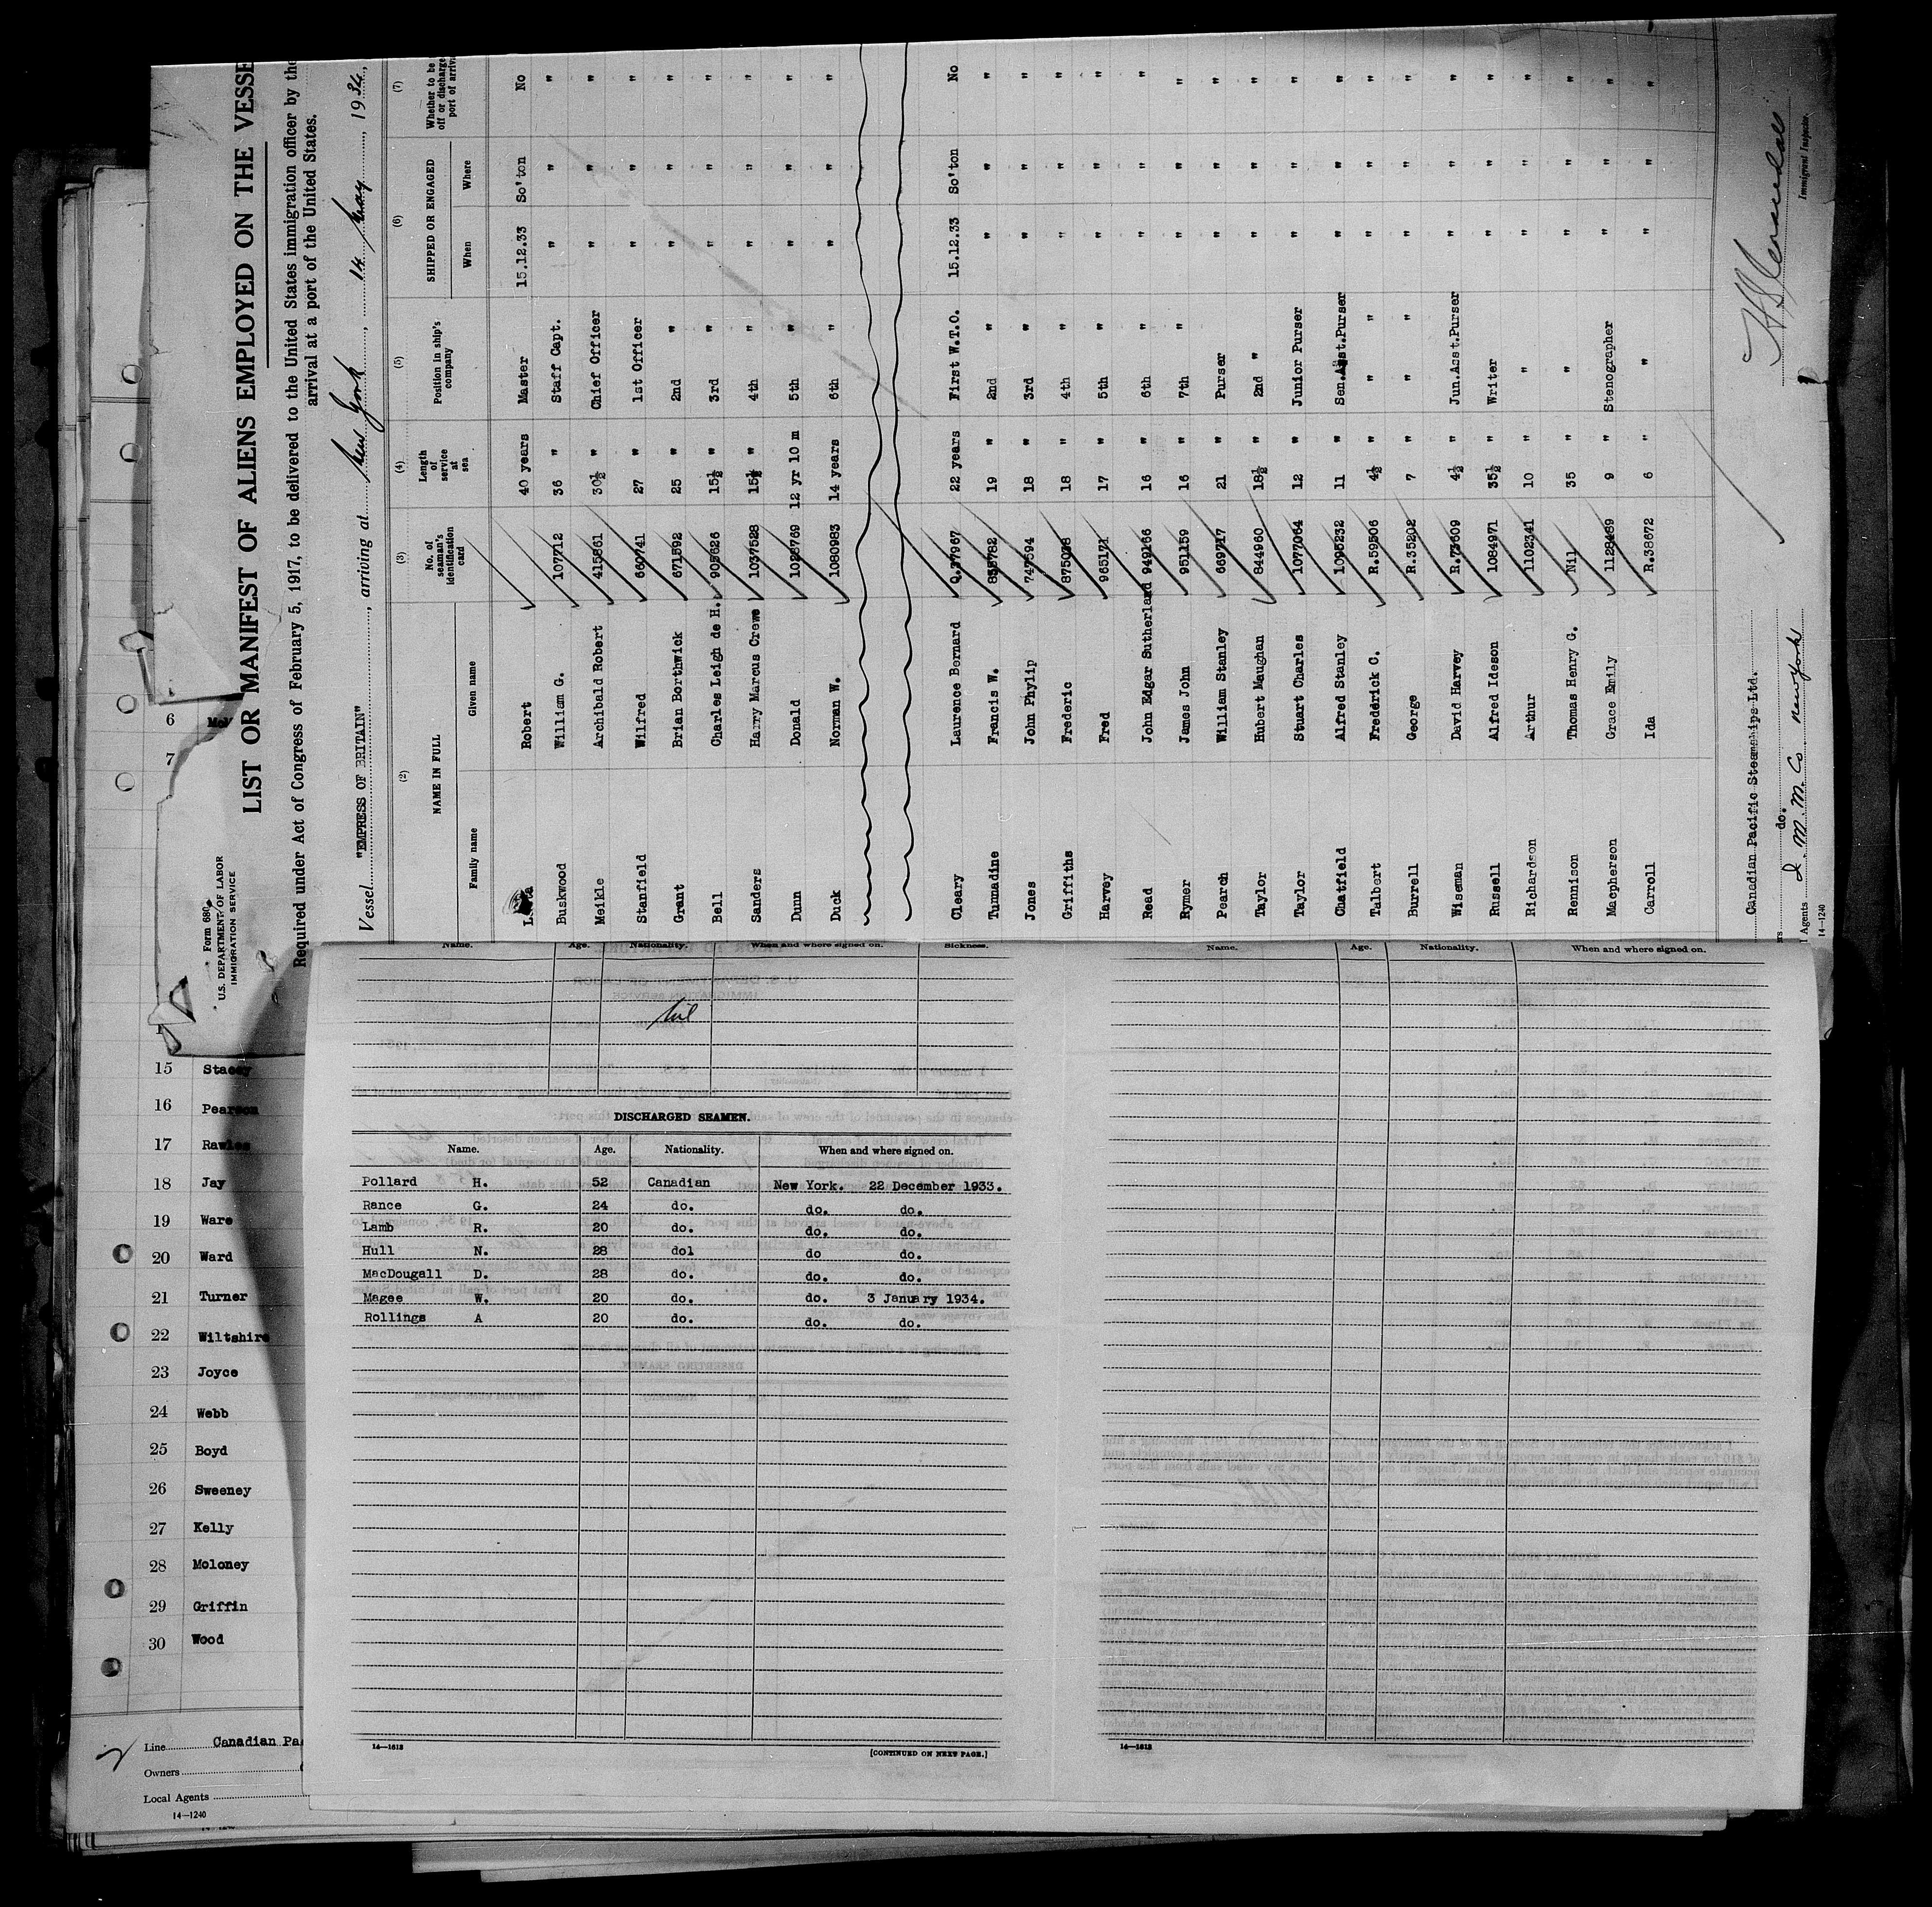 Form 680
U.S. DEPARTMENT OF LABOR
IMMIGRATION SERVICE
LIST OR MANIFEST OF ALIENS EMPLOYED ON THE VESSE
Required under Act of Congress of February 5, 1917, to be delivered to the United States immigration officer by the
arrival at a port of the United States.
Vessel "EMPRESS OF BRITAIN", arriving at New York, 14 May, 1934,
(2) (3) (4) (5) (6) (7)
NAME IN FULL No. of seaman's identification card Length of service at sea Position in ship's company SHIPPED OR ENGAGED Whether to be off or discharge port of arriv
Family name Given name When Where
Robert 40 years Master 15.12.33 So'ton No
Buskwood William G. 107712 36 " Staff Capt. " " "
Meikle Archibald Robert 415861 30½ " Chief Officer " " "
Stanfield Wilfred 660741 27 " 1st Officer " " "
Grant Brian Borthwick 671592 25 " 2nd " " " "
Bell Charles Leigh de H. 905626 15½ " 3rd " " " "
Sanders Harry Marcus Crewe 1037528 15½ " 4th " " " "
Dunn Donald 1028769 12 yr 10 m 5th " " " "
Duck Norman W. 1080983 14 years 6th " " " "
Cleary Laurence Bernard 22 years First W.T.O. 15.12.33 So'ton No
Tunnadine Francis W. 19 " 2nd " " " "
Jones John Phylip 747594 18 " 3rd " " " "
Griffiths Frederic 18 " 4th " " " "
Harvey Fred 965171 17 " 5th " " " "
Read John Edgar Sutherland 949166 16 " 6th " " " "
Rymer James John 951159 16 " 7th " " " "
Pearch William Stanley 669717 21 " Purser " " "
Taylor Hubert Maughan 844960 18½ " 2nd " " " "
Taylor Stuart Charles 1077064 12 " Junior Purser " " "
Chatfield Alfred Stanley 1095232 11 " Sen.Asst.Purser " " "
Talbert Frederick C. R.59506 4½ " " " " " "
Burrell George R.35202 7 " " " " " "
Wiseman David Harvey R.73609 4½ " Jun.Asst.Purser " " "
Russell Alfred Ideson 1084971 35½ " Writer " " "
Richardson Arthur 1102341 10 " " " " "
Rennison Thomas Henry G. Nil 35 " " " " "
Macpherson Grace Emily 1128489 9 " Stenographer " " "
Carroll Ida R.38672 6 " " " " "
Canadian Pacific Steamships Ltd.
rs do.
l Agents I. M. M. Co New York
14-1240
Immigrant Inspector.
6
7
15 Stacey
16 Pearson
17 Rawles
18 Jay
19 Ware
20 Ward
21 Turner
22 Wiltshire
23 Joyce
24 Webb
25 Boyd
26 Sweeney
27 Kelly
28 Moloney
29 Griffin
30 Wood
Line Canadian Pa
Owners
Local Agents
14-1240
Name. Age. Nationality. When and where signed on. Sickness.
Nil
DISCHARGED SEAMEN.
Name. Age. Nationality. When and where signed on.
Pollard H. 52 Canadian New York. 22 December 1933.
Rance G. 24 do. do. do.
Lamb R. 20 do. do. do.
Hull N. 28 dol do do.
MacDougall D. 28 do. do. do.
Magee W. 20 do. do. 3 January 1934.
Rollings A 20 do. do. do.
14-1613
[CONTINUED ON NEXT PAGE.]
Name. Age. Nationality. When and where signed on.
14-1613